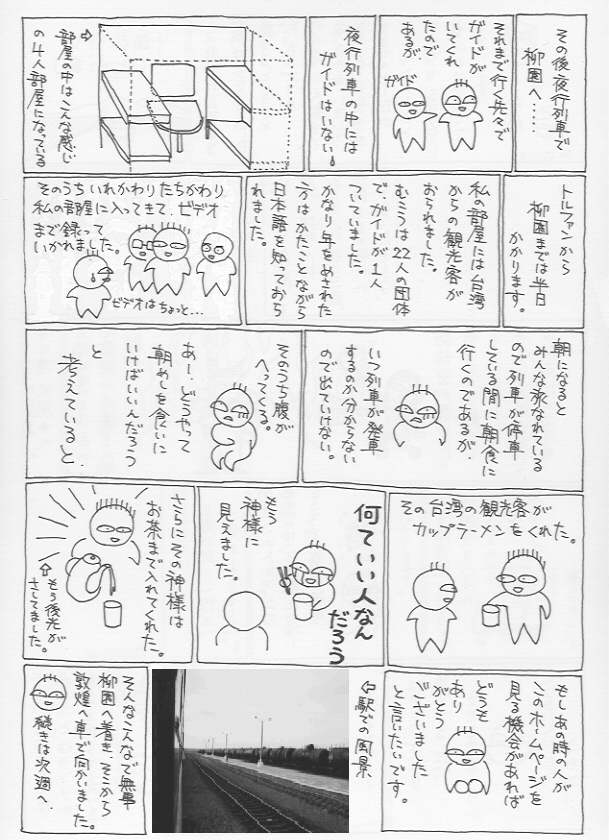 その後夜行列車で
柳園へ……
それまで行く先々で
ガイドが
いてくれ
たので
あるが、
ガイド
夜行列車の中には
ガイドはいない。
⇨
部屋の中はこんな感じ
の4人部屋になっている
トルファンから
柳園までは半日
かかります。
私の部屋には台湾
からの観光客が
おられました。
むこうは22人の団体
で、ガイドが1人
ついていました。
かなり年をめされた
方は かたことながら
日本語を知っておら
れました。
そのうち いれかわり たちかわり
私の部屋に入ってきて、ビデオ
まで録って
いかれました。
ビデオはちょっと…
朝になると
みんな旅なれている
ので列車が停車
している間に朝食に
行くのであるが、
いつ列車が発車
するのか分からない
ので出ていけない。
そのうち腹が
へってくる。
あー、どうやって
朝めしを食いに
いけばいいんだろう
と
考えていると、
その台湾の観光客が
カップラーメンをくれた。
何ていい人なん
だろう
もう
神様に
見えました。
さらにその神様は
お茶まで入れてくれた。
⇧
もう後光が
さしてました。
もしあの時の人が
このホームページを
見る機会があれば
どうも
ありがとう
ございました
と言いたいです。
⇦駅での風景
そんなこんなで無事
柳園へ着き、そこから
敦煌へ車で向かいました。
続きは次週へ。